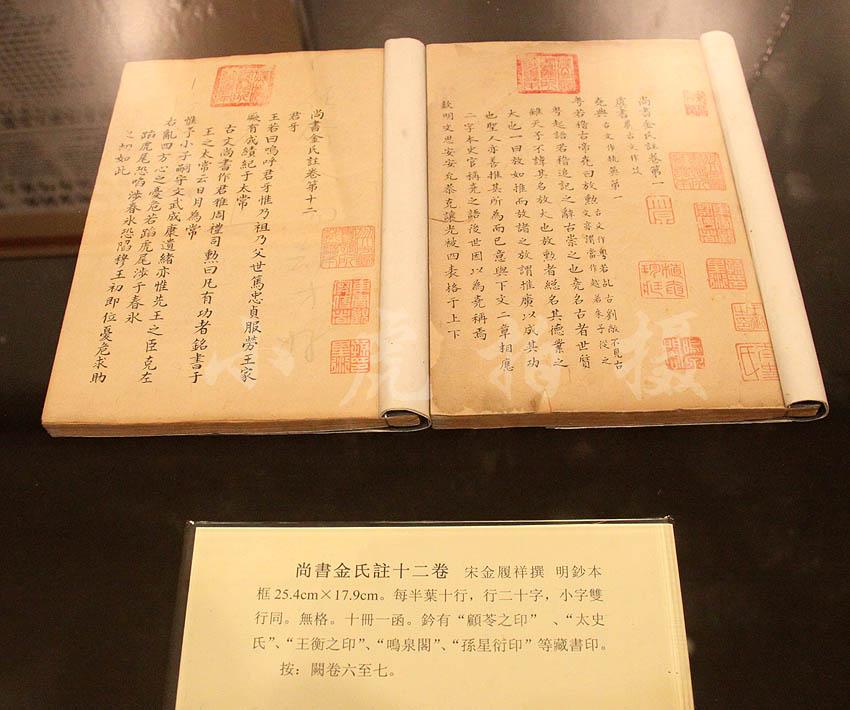 尚書金氏註卷第一
虞書
堯典 古文作 第一
粵若稽古帝堯曰放勳
粵起語若稽追記之辭古崇之也堯名古者世質
雖天子不諱其名放大也放勳者總名其德業之
大也一曰放如推而放諸之放謂推廣以成其功
也聖人亦善推其所為而已意與下文二章相應
二字本史官 堯之語後世因以為堯稱焉
欽明文思安安允恭克讓光被四表格于上下
尚書金氏註卷第十二
君牙
王若曰嗚呼君牙惟乃祖乃父世篤忠貞服勞王家
厥有成績紀于太常
古文尚書作君雅周禮司勳曰凡有功者銘書于
王之太常云日月為常
惟予小子嗣守文武成康遺緒亦惟先王之臣克左
右亂四方心之憂危若蹈虎尾涉于春冰
蹈虎尾恐噬涉春冰恐陷穆王初即位憂危求助
之切如此
小虎拍摄
尚書金氏註十二卷 宋金履祥撰 明鈔本
框25.4cm×17.9cm。每半葉十行，行二十字，小字雙
行同。無格。十冊一函。鈐有“顧苓之印”、“太史
氏”、“王衡之印”、“鳴泉閣”、“孫星衍印”等藏書印。
按：闕卷六至七。